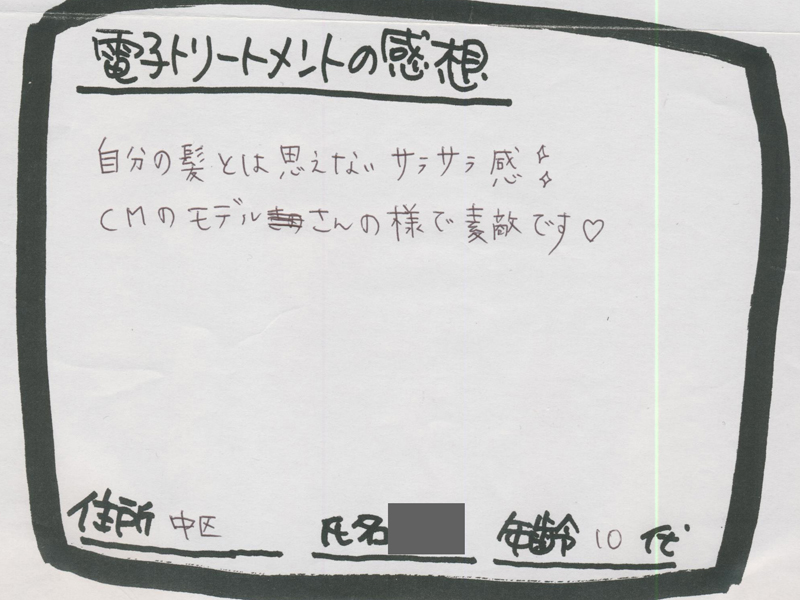 電子トリートメントの感想
自分の髪とは思えない サラサラ感
CMのモデルさんの様で素敵です♡
住所 中区 氏名 年齢 10 代